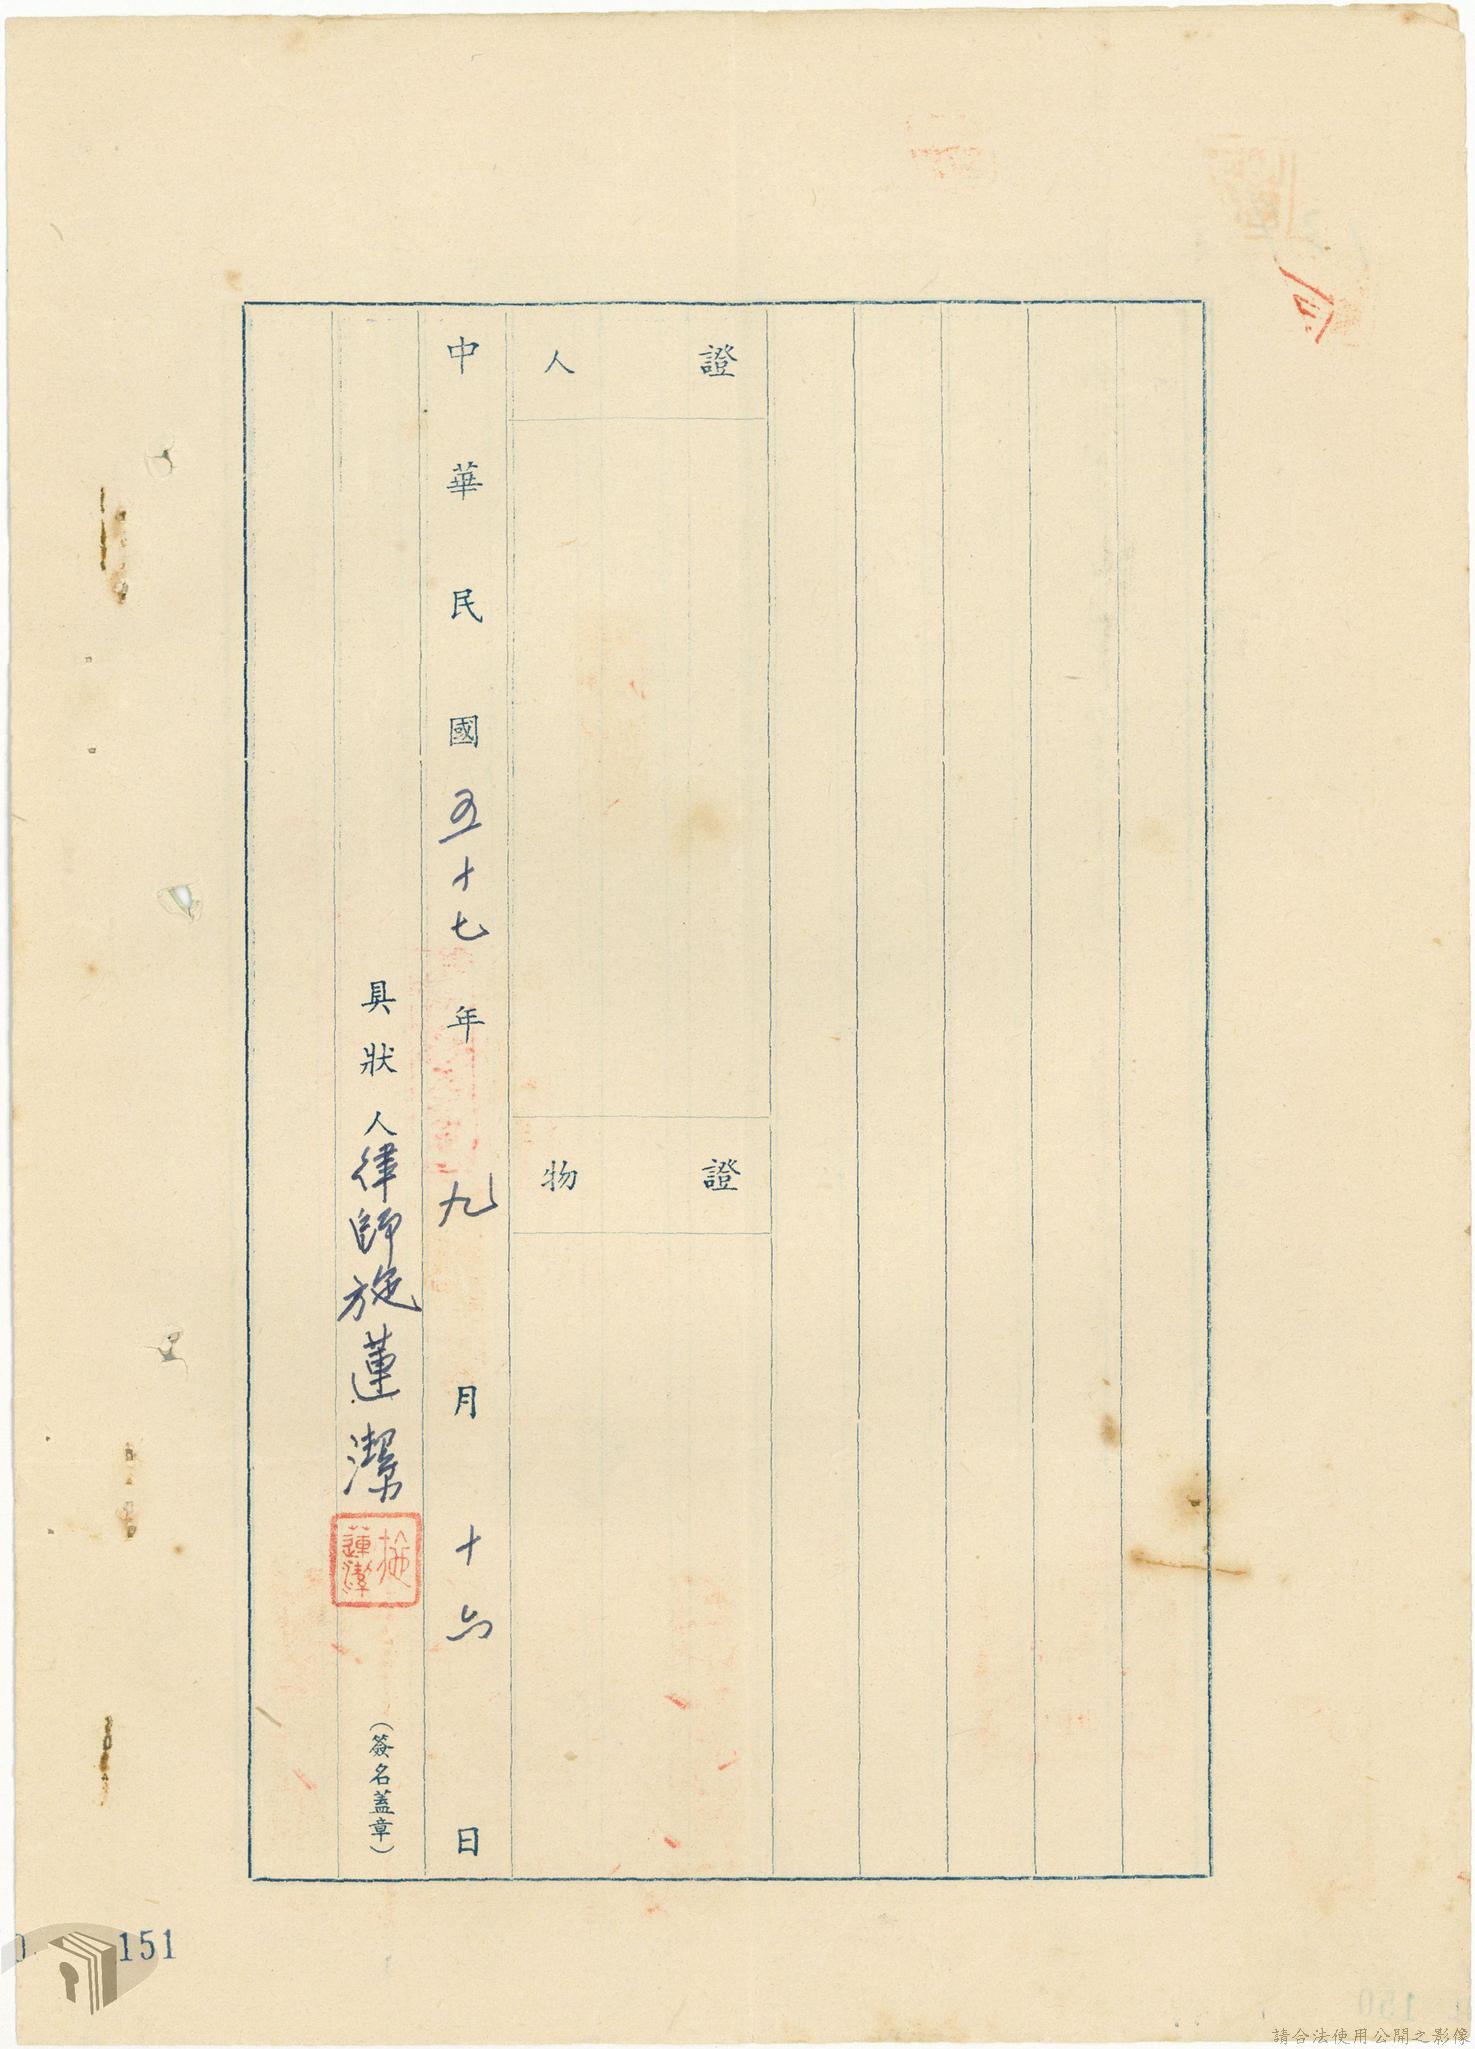 證人
證物
中華民國五十七年九月十六日
具狀人律師施蓮潔
施蓮潔
(簽名蓋章)
151
請合法使用公開之影像